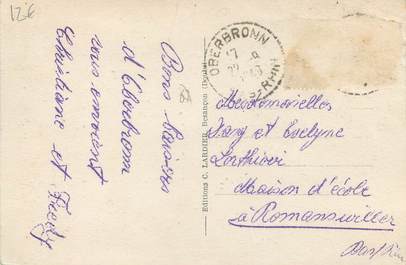 12 €
Bons Baisers
d'Oberbronn
vous envoient
Christiane et Fredy
Editions C. LARDIER, Besançon (Doubs)
OBERBRONN
RHIN
Mesdemoiselles
et Evelyne
Maison d'école
à Romanswiller
Bas Rhin